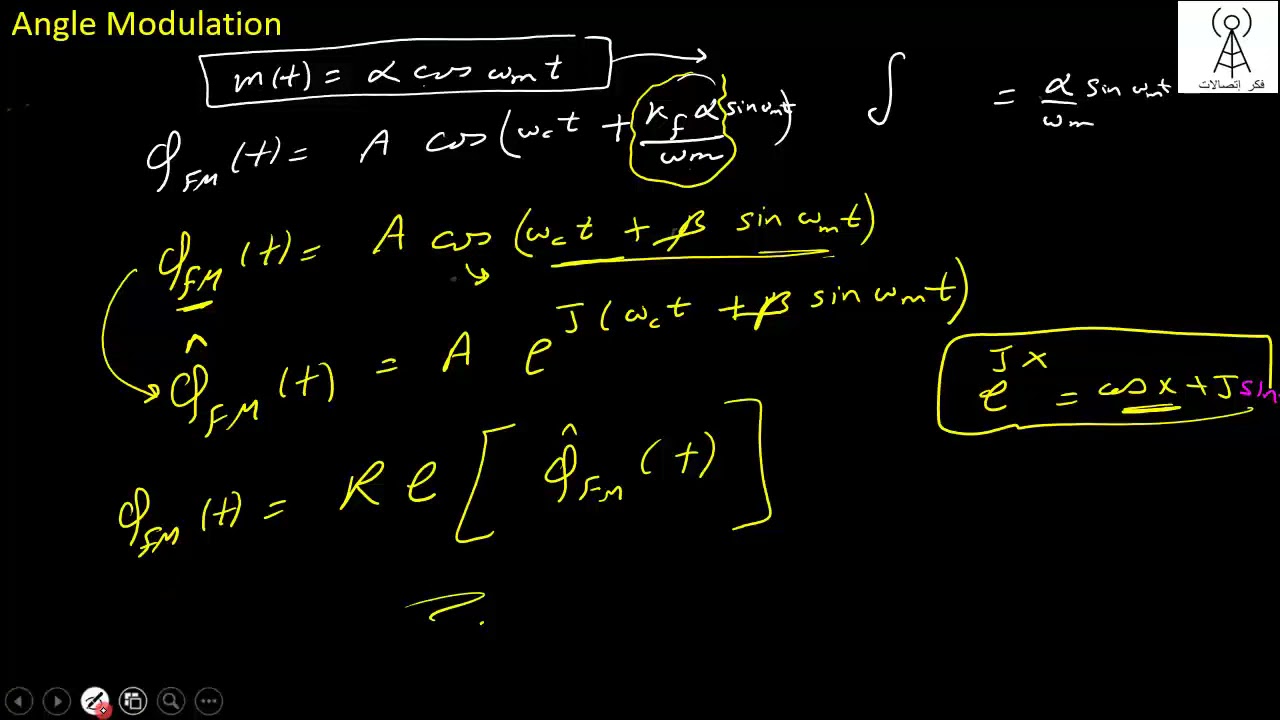 Angle Modulation
فكر إتصالات
m(t) = α cos ωm t
∫ = α/ωm sin ωm t
φFM (t) = A cos (ωc t + kf α/ωm sin ωm t)
φFM (t) = A cos (ωc t + β sin ωm t)
φ̂FM (t) = A e^J(ωc t + β sin ωm t)
e^Jx = cos x + J sin
φFM (t) = Re [ φ̂FM (t) ]